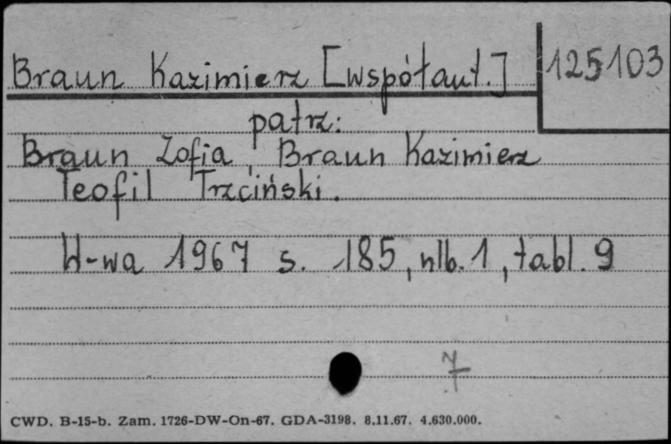 Braun Kazimierz [współaut.] 125103
patrz:
Braun Zofia, Braun Kazimierz
Teofil Trzciński.
W-wa 1967 s. 185, nlb. 1, tabl. 9
7
CWD. B-15-b. Zam. 1726-DW-On-67. GDA-3198. 8.11.67. 4.630.000.